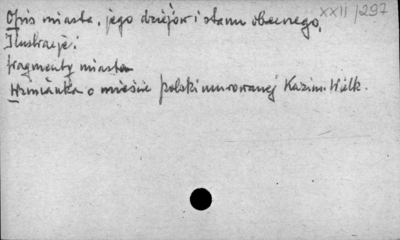 XXII/297
Opis miasta, jego dziejów i stanu obecnego,
Ilustracje:
fragmenty miasta
Wzmianka o mieście polski murowanej Kazim. Wielk.